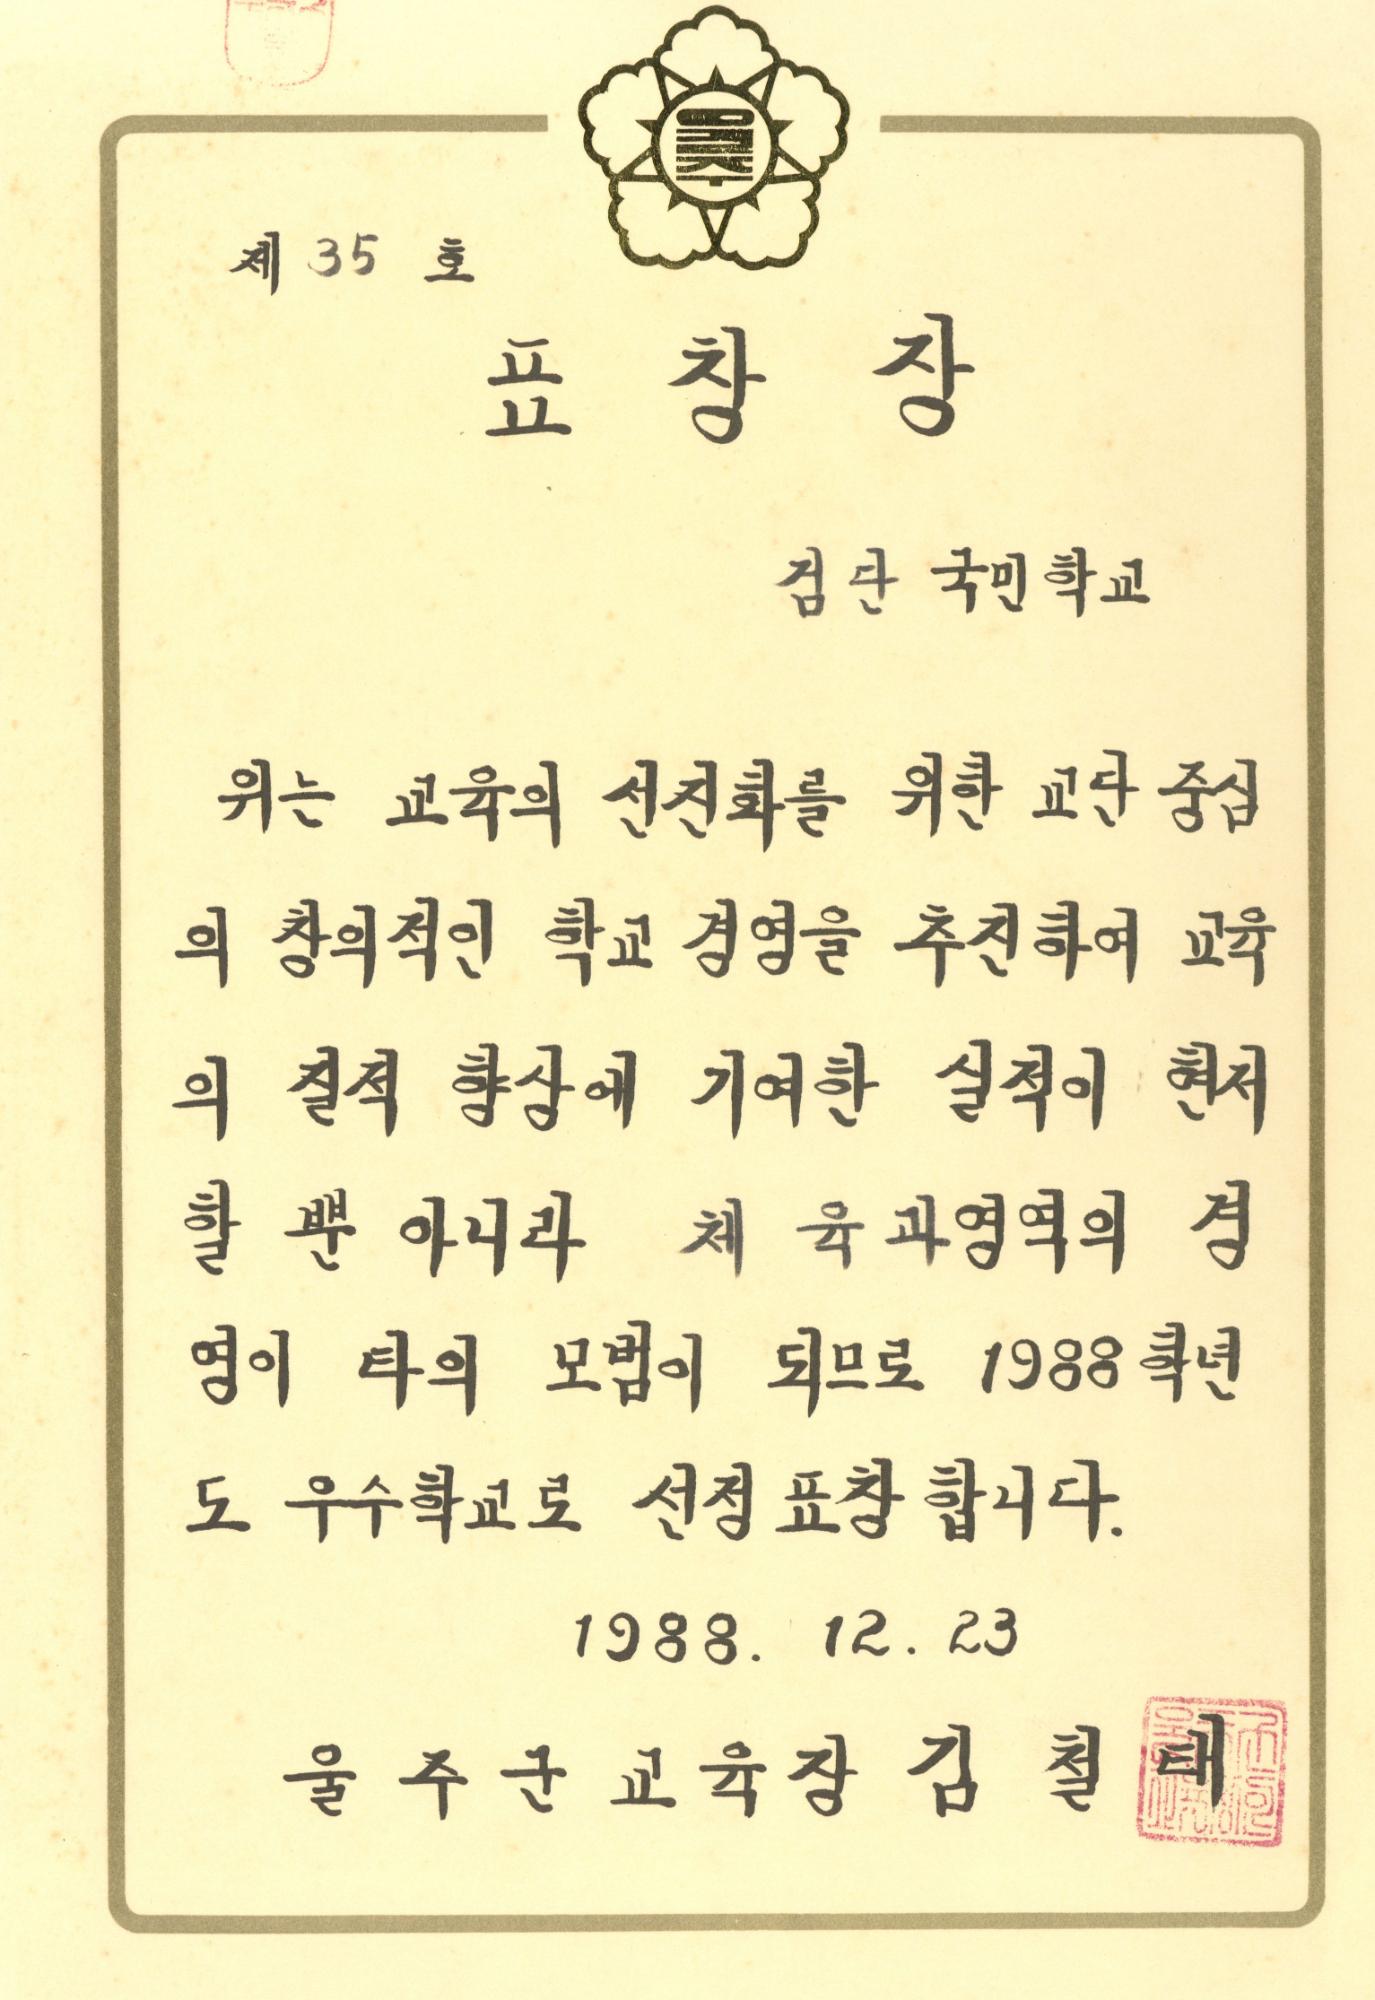 울주
제 35 호
표 창 장
검단 국민학교
위는 교육의 선진화를 위한 교단 중심
의 창의적인 학교 경영을 추진하여 교육
의 질적 향상에 기여한 실적이 현저
할 뿐 아니라 체 육 과영역의 경
영이 타의 모범이 되므로 1988학년
도 우수학교로 선정 표창 합니다.
1988. 12. 23
울 주 군 교 육 장 김 철 태